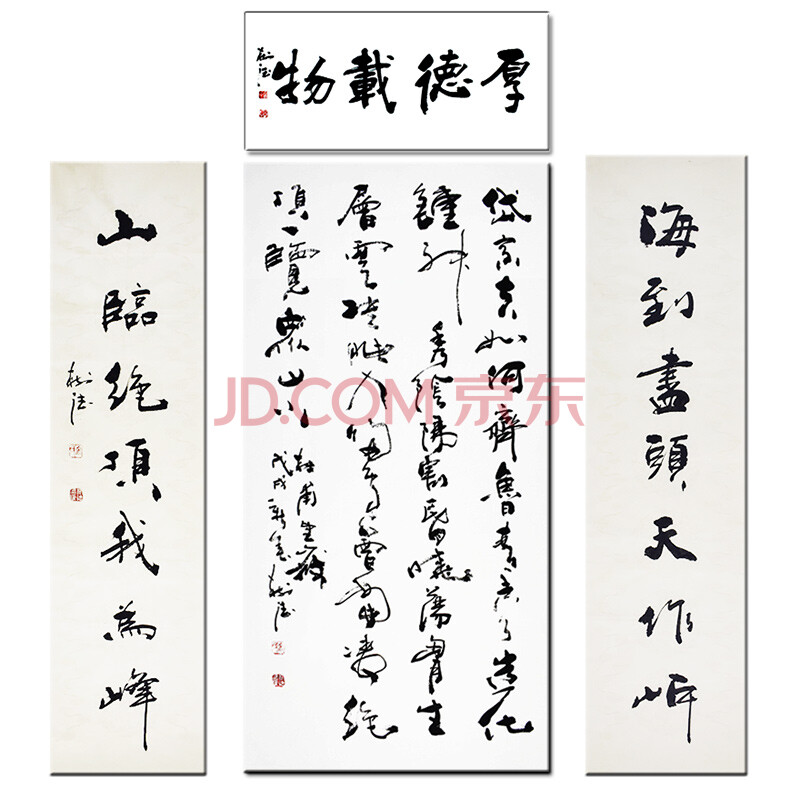 厚德載物
海到盡頭天作岸
岱宗夫如何齊魯青未了造化
鍾神秀陰陽割昏曉蕩胸生
層雲決眥入歸鳥會當凌絕
頂一覽眾山小
杜甫望嶽
戊戌
山臨絕頂我為峰
JD.COM 京东